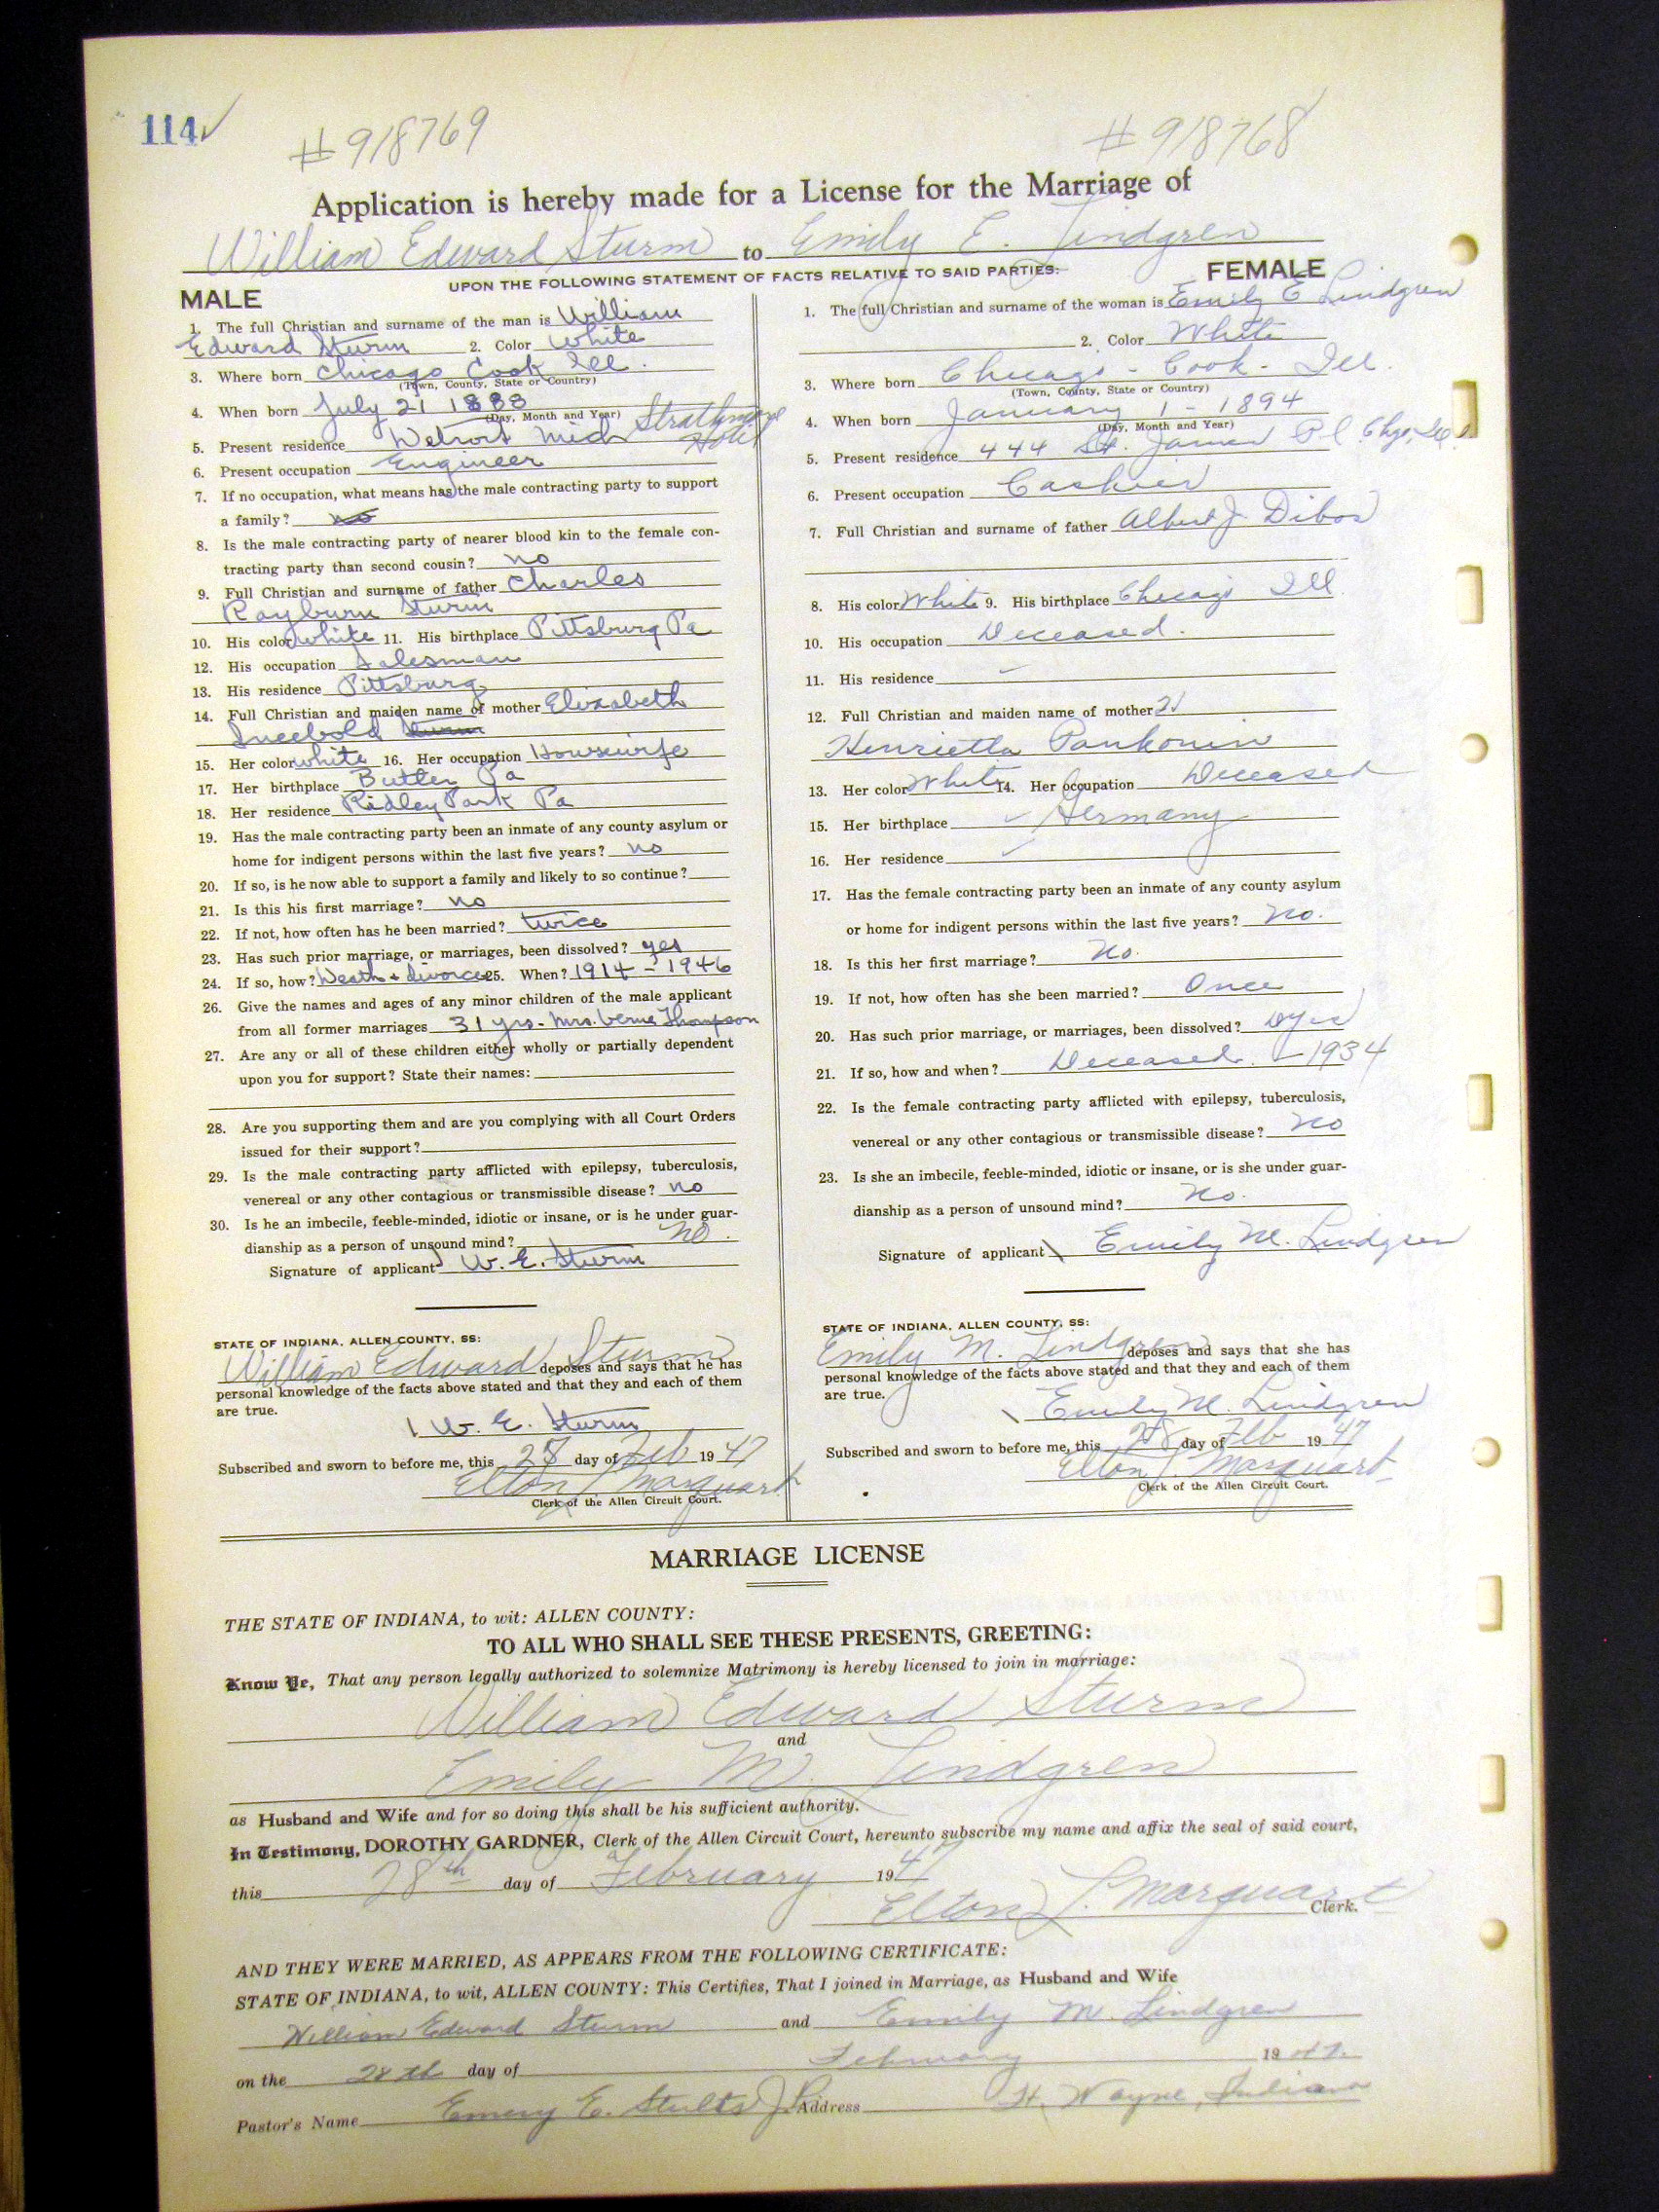 114 ✓
#918769 #918768
Application is hereby made for a License for the Marriage of
William Edward Sturm to Emily E. Lindgren
UPON THE FOLLOWING STATEMENT OF FACTS RELATIVE TO SAID PARTIES:
MALE
1. The full Christian and surname of the man is William
Edward Sturm 2. Color White
3. Where born Chicago Cook Ill.
(Town, County, State or Country)
4. When born July 21 1888
(Day, Month and Year)
5. Present residence Detroit Mich Strathmore Hotel
6. Present occupation Engineer
7. If no occupation, what means has the male contracting party to support
a family? no
8. Is the male contracting party of nearer blood kin to the female con-
tracting party than second cousin? no
9. Full Christian and surname of father Charles
Rayburn Sturm
10. His color white 11. His birthplace Pittsburg Pa
12. His occupation Salesman
13. His residence Pittsburg
14. Full Christian and maiden name of mother Elizabeth
Sturm
15. Her color white 16. Her occupation Housewife
17. Her birthplace Butler Pa
18. Her residence Ridley Park Pa
19. Has the male contracting party been an inmate of any county asylum or
home for indigent persons within the last five years? no
20. If so, is he now able to support a family and likely to so continue?
21. Is this his first marriage? no
22. If not, how often has he been married? twice
23. Has such prior marriage, or marriages, been dissolved? yes
24. If so, how? Death + divorce 25. When? 1914 - 1946
26. Give the names and ages of any minor children of the male applicant
from all former marriages 31 yrs. - Mrs. Verne Thompson
27. Are any or all of these children either wholly or partially dependent
upon you for support? State their names:
28. Are you supporting them and are you complying with all Court Orders
issued for their support?
29. Is the male contracting party afflicted with epilepsy, tuberculosis,
venereal or any other contagious or transmissible disease? no
30. Is he an imbecile, feeble-minded, idiotic or insane, or is he under guar-
dianship as a person of unsound mind? no.
Signature of applicant W. E. Sturm
STATE OF INDIANA, ALLEN COUNTY, SS:
William Edward Sturm deposes and says that he has
personal knowledge of the facts above stated and that they and each of them
are true.
W. E. Sturm
Subscribed and sworn to before me, this 28 day of Feb 1947
Elton J. Marquart
Clerk of the Allen Circuit Court.
FEMALE
1. The full Christian and surname of the woman is Emily E Lindgren
2. Color White
3. Where born Chicago - Cook - Ill.
(Town, County, State or Country)
4. When born January 1 - 1894
(Day, Month and Year)
5. Present residence 444 St. James Pl. Chgo, Ill.
6. Present occupation Cashier
7. Full Christian and surname of father Albert J. Dibos
8. His color White 9. His birthplace Chicago Ill
10. His occupation Deceased.
11. His residence
12. Full Christian and maiden name of mother
Henrietta Pankonin
13. Her color White 14. Her occupation Deceased
15. Her birthplace Germany
16. Her residence
17. Has the female contracting party been an inmate of any county asylum
or home for indigent persons within the last five years? No.
18. Is this her first marriage? No.
19. If not, how often has she been married? Once
20. Has such prior marriage, or marriages, been dissolved? yes
21. If so, how and when? Deceased. - 1934
22. Is the female contracting party afflicted with epilepsy, tuberculosis,
venereal or any other contagious or transmissible disease? no
23. Is she an imbecile, feeble-minded, idiotic or insane, or is she under guar-
dianship as a person of unsound mind? no.
Signature of applicant Emily M. Lindgren
STATE OF INDIANA, ALLEN COUNTY, SS:
Emily M. Lindgren deposes and says that she has
personal knowledge of the facts above stated and that they and each of them
are true.
Emily M. Lindgren
Subscribed and sworn to before me, this 28 day of Feb 1947
Elton J. Marquart
Clerk of the Allen Circuit Court.
MARRIAGE LICENSE
THE STATE OF INDIANA, to wit: ALLEN COUNTY:
TO ALL WHO SHALL SEE THESE PRESENTS, GREETING:
Know Ye, That any person legally authorized to solemnize Matrimony is hereby licensed to join in marriage:
William Edward Sturm
and
Emily M. Lindgren
as Husband and Wife and for so doing this shall be his sufficient authority.
In Testimony, DOROTHY GARDNER, Clerk of the Allen Circuit Court, hereunto subscribe my name and affix the seal of said court,
this 28th day of February 1947
Elton J. Marquart Clerk.
AND THEY WERE MARRIED, AS APPEARS FROM THE FOLLOWING CERTIFICATE:
STATE OF INDIANA, to wit, ALLEN COUNTY: This Certifies, That I joined in Marriage, as Husband and Wife
William Edward Sturm and Emily M. Lindgren
on the 28th day of February 1947.
Pastor's Name Emery E. Stults J.P. Address Ft. Wayne, Indiana